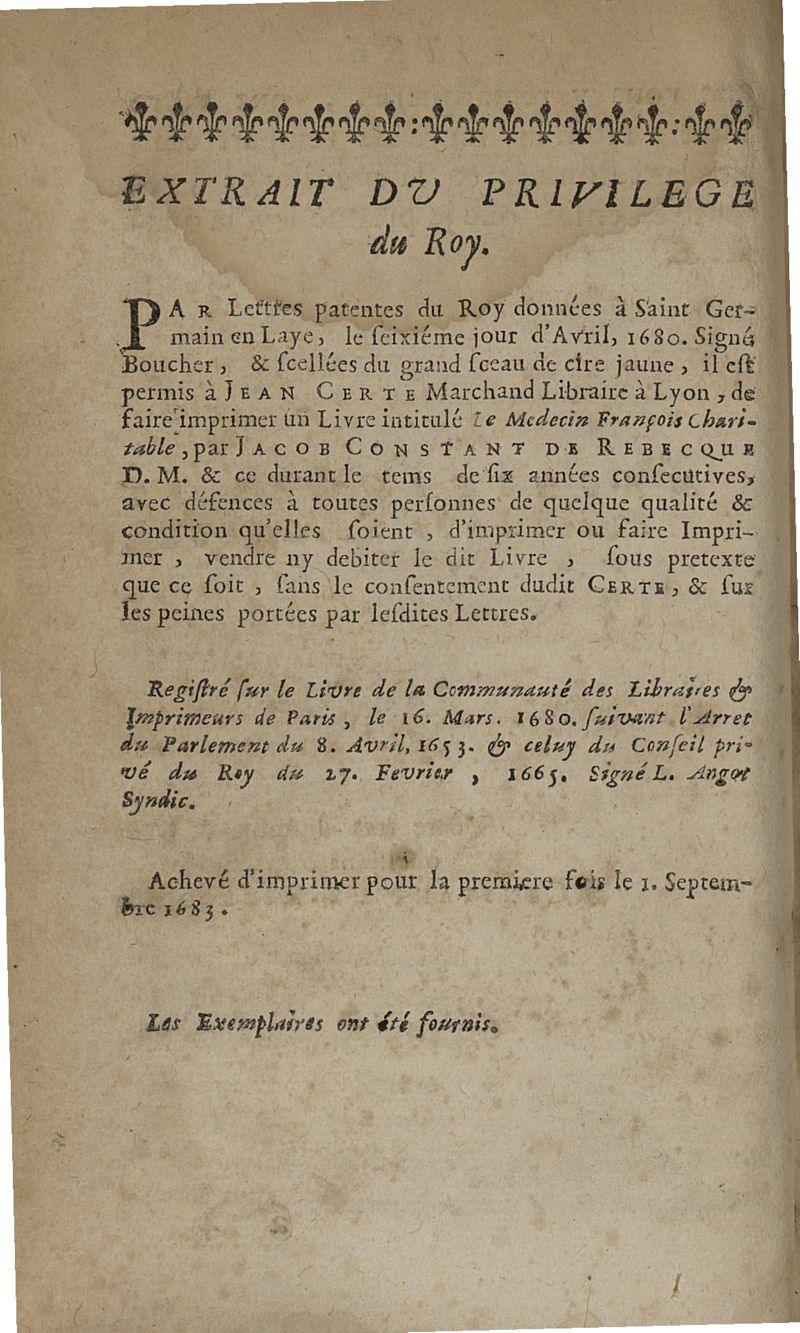 EXTRAIT DU PRIVILEGE
du Roy.
PAR Lettres patentes du Roy données à Saint Ger-
main en Laye, le ſeixiéme jour d'Avril, 1680. Signé
Boucher, & ſcellées du grand ſceau de cire jaune, il eſt
permis à JEAN CERTE Marchand Libraire à Lyon, de
faire imprimer un Livre intitulé Le Medecin François Chari-
table, par JACOB CONSTANT DE REBECQUE
D. M. & ce durant le tems de ſix années conſecutives,
avec défences à toutes perſonnes de quelque qualité &
condition qu'elles ſoient, d'imprimer ou faire Impri-
mer, vendre ny debiter le dit Livre, ſous pretexte
que ce ſoit, ſans le conſentement dudit CERTE, & ſur
les peines portées par leſdites Lettres.
Regiſtré ſur le Livre de la Communauté des Libraires &
Imprimeurs de Paris, le 16. Mars. 1680. ſuivant l'Arret
du Parlement du 8. Avril, 1653. & celuy du Conſeil pri-
vé du Roy du 27. Fevrier, 1665. Signé L. Angot
Syndic.
Achevé d'imprimer pour la premiere fois le 1. Septem-
bre 1683.
Les Exemplaires ont été fournis.